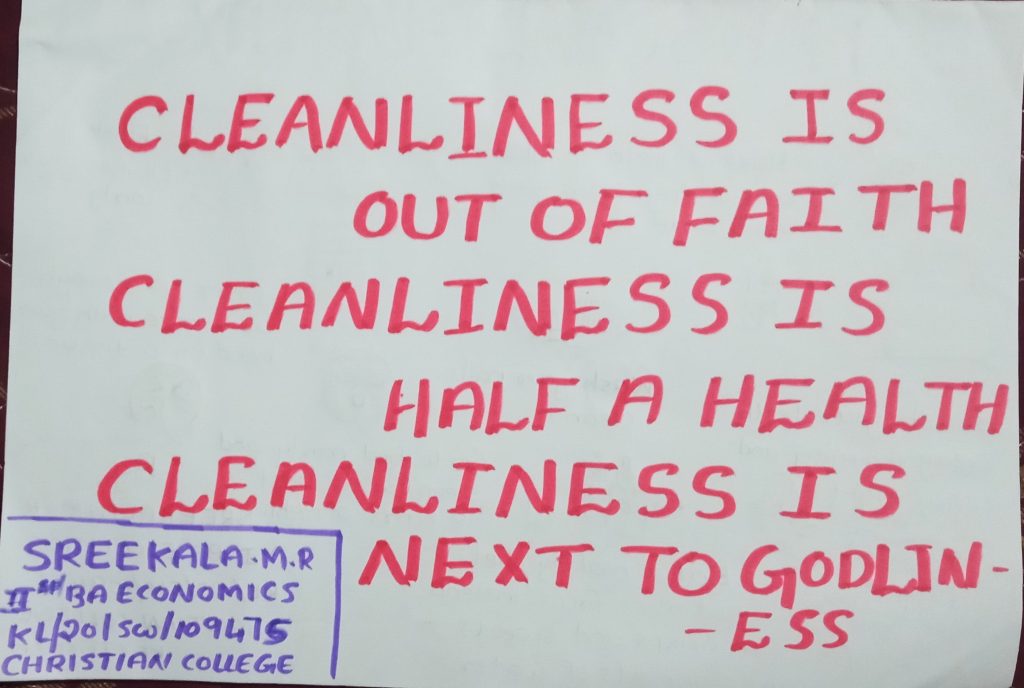 CLEANLINESS IS
OUT OF FAITH
CLEANLINESS IS
HALF A HEALTH
CLEANLINESS IS
NEXT TO GODLIN-
-ESS
SREEKALA.M.R
BA ECONOMICS
KL/20/SW/109475
CHRISTIAN COLLEGE